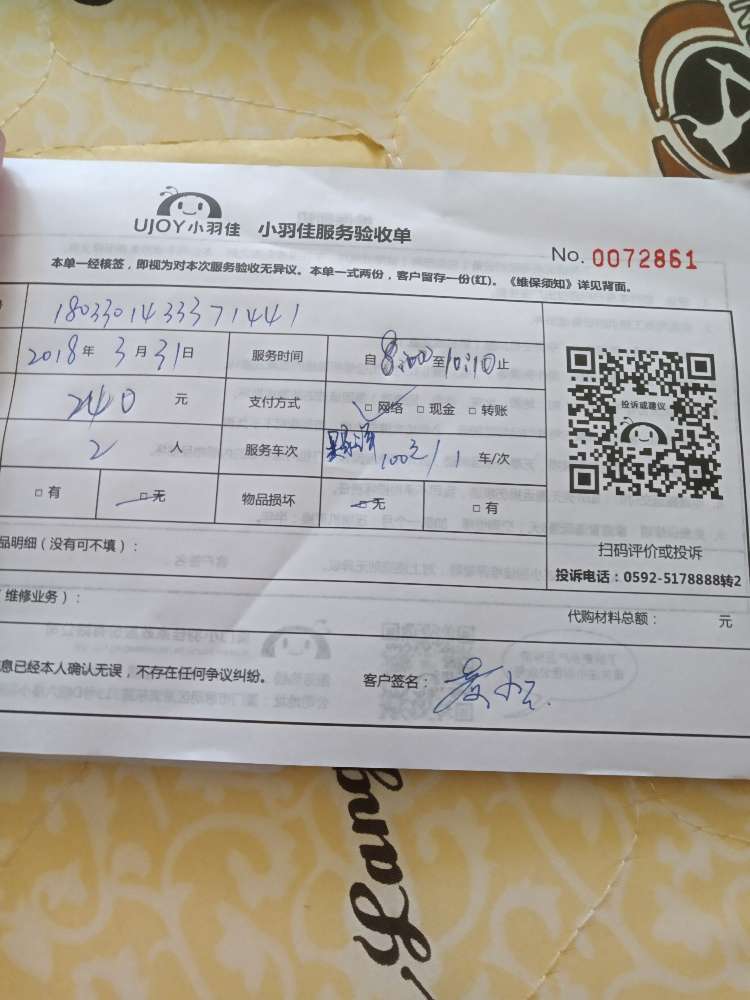 UJOY小羽佳 小羽佳服务验收单
No. 0072861
本单一经核签，即视为对本次服务验收无异议。本单一式两份，客户留存一份(红)。《维保须知》详见背面。
1803301433371441
2018年3月31日 服务时间 自8:00至10:10止
240元 支付方式 □网络 □现金 □转账
2人 服务车次 100元/1车/次
□有 □无 物品损坏 □无 □有
投诉或建议
扫码评价或投诉
投诉电话：0592-5178888转2
品明细（没有可不填）：
维修业务）：
代购材料总额： 元
息已经本人确认无误，不存在任何争议纠纷。 客户签名：
Lang